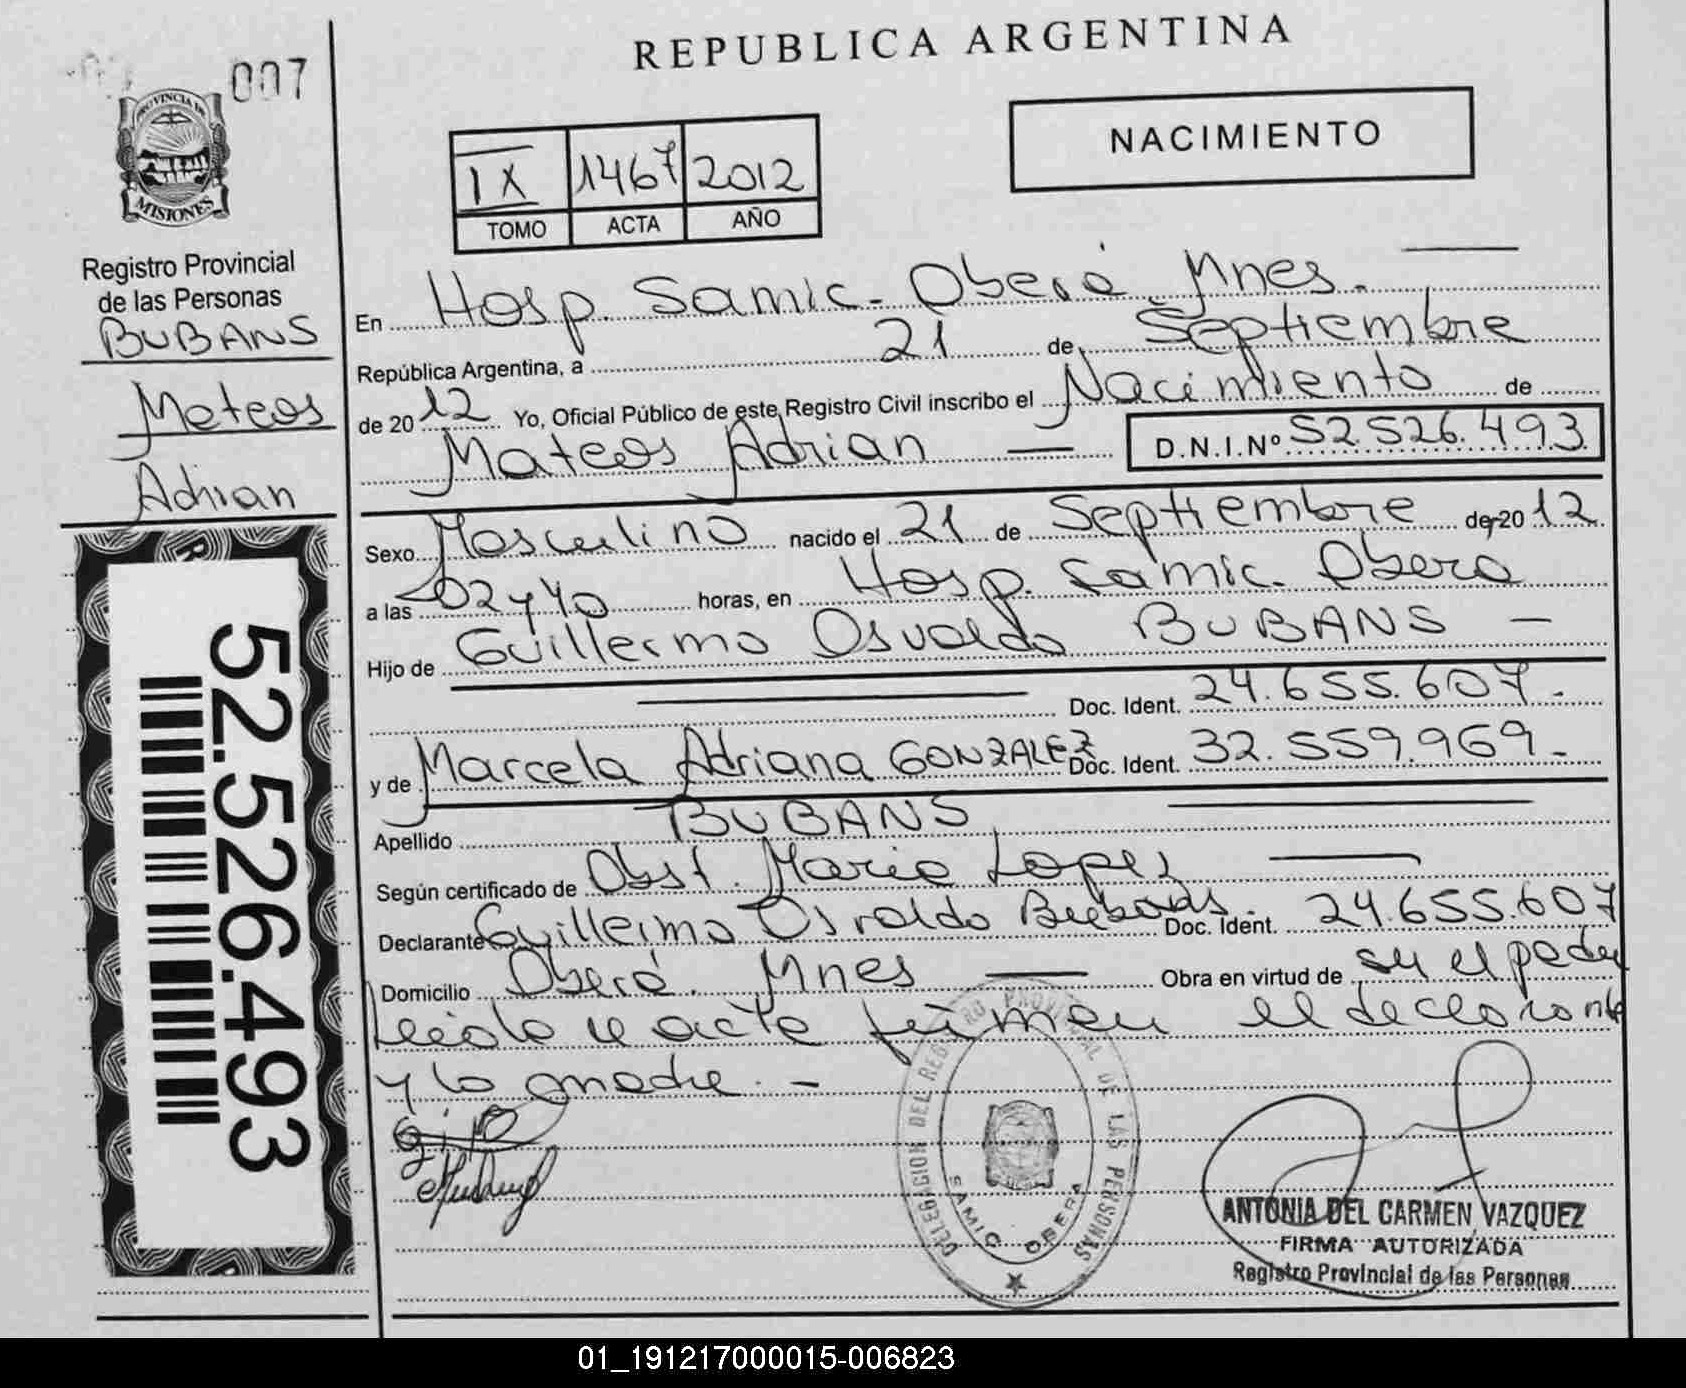 007
PROVINCIA DE
MISIONES
Registro Provincial
de las Personas
BUBANS
Mateos
Adrian
52.526.493
REPUBLICA ARGENTINA
NACIMIENTO
IX 1467 2012
TOMO ACTA AÑO
En Hosp. Samic - Oberá Mnes.
República Argentina, a 21 de Septiembre
de 2012 Yo, Oficial Público de este Registro Civil inscribo el Nacimiento de
Mateos Adrian — D.N.I.Nº 52.526.493
Sexo Masculino nacido el 21 de Septiembre de 2012
a las 02 y 40 horas, en Hosp. Samic. Obera
Hijo de Guillermo Osvaldo BUBANS —
Doc. Ident. 24.655.607.-
y de Marcela Adriana GONZALEZ Doc. Ident. 32.559.969.-
Apellido BUBANS
Según certificado de Obst. Maria Lopez
Declarante Guillermo Osvaldo Bubans. Doc. Ident. 24.655.607
Domicilio Oberá. Mnes — Obra en virtud de ser el padre
Leida el acta firman el declarante
y la madre. -
DELEGACION DEL REGISTRO PROVINCIAL DE LAS PERSONAS
SAMIC OBERA
ANTONIA DEL CARMEN VAZQUEZ
FIRMA AUTORIZADA
Registro Provincial de las Personas
01_191217000015-006823